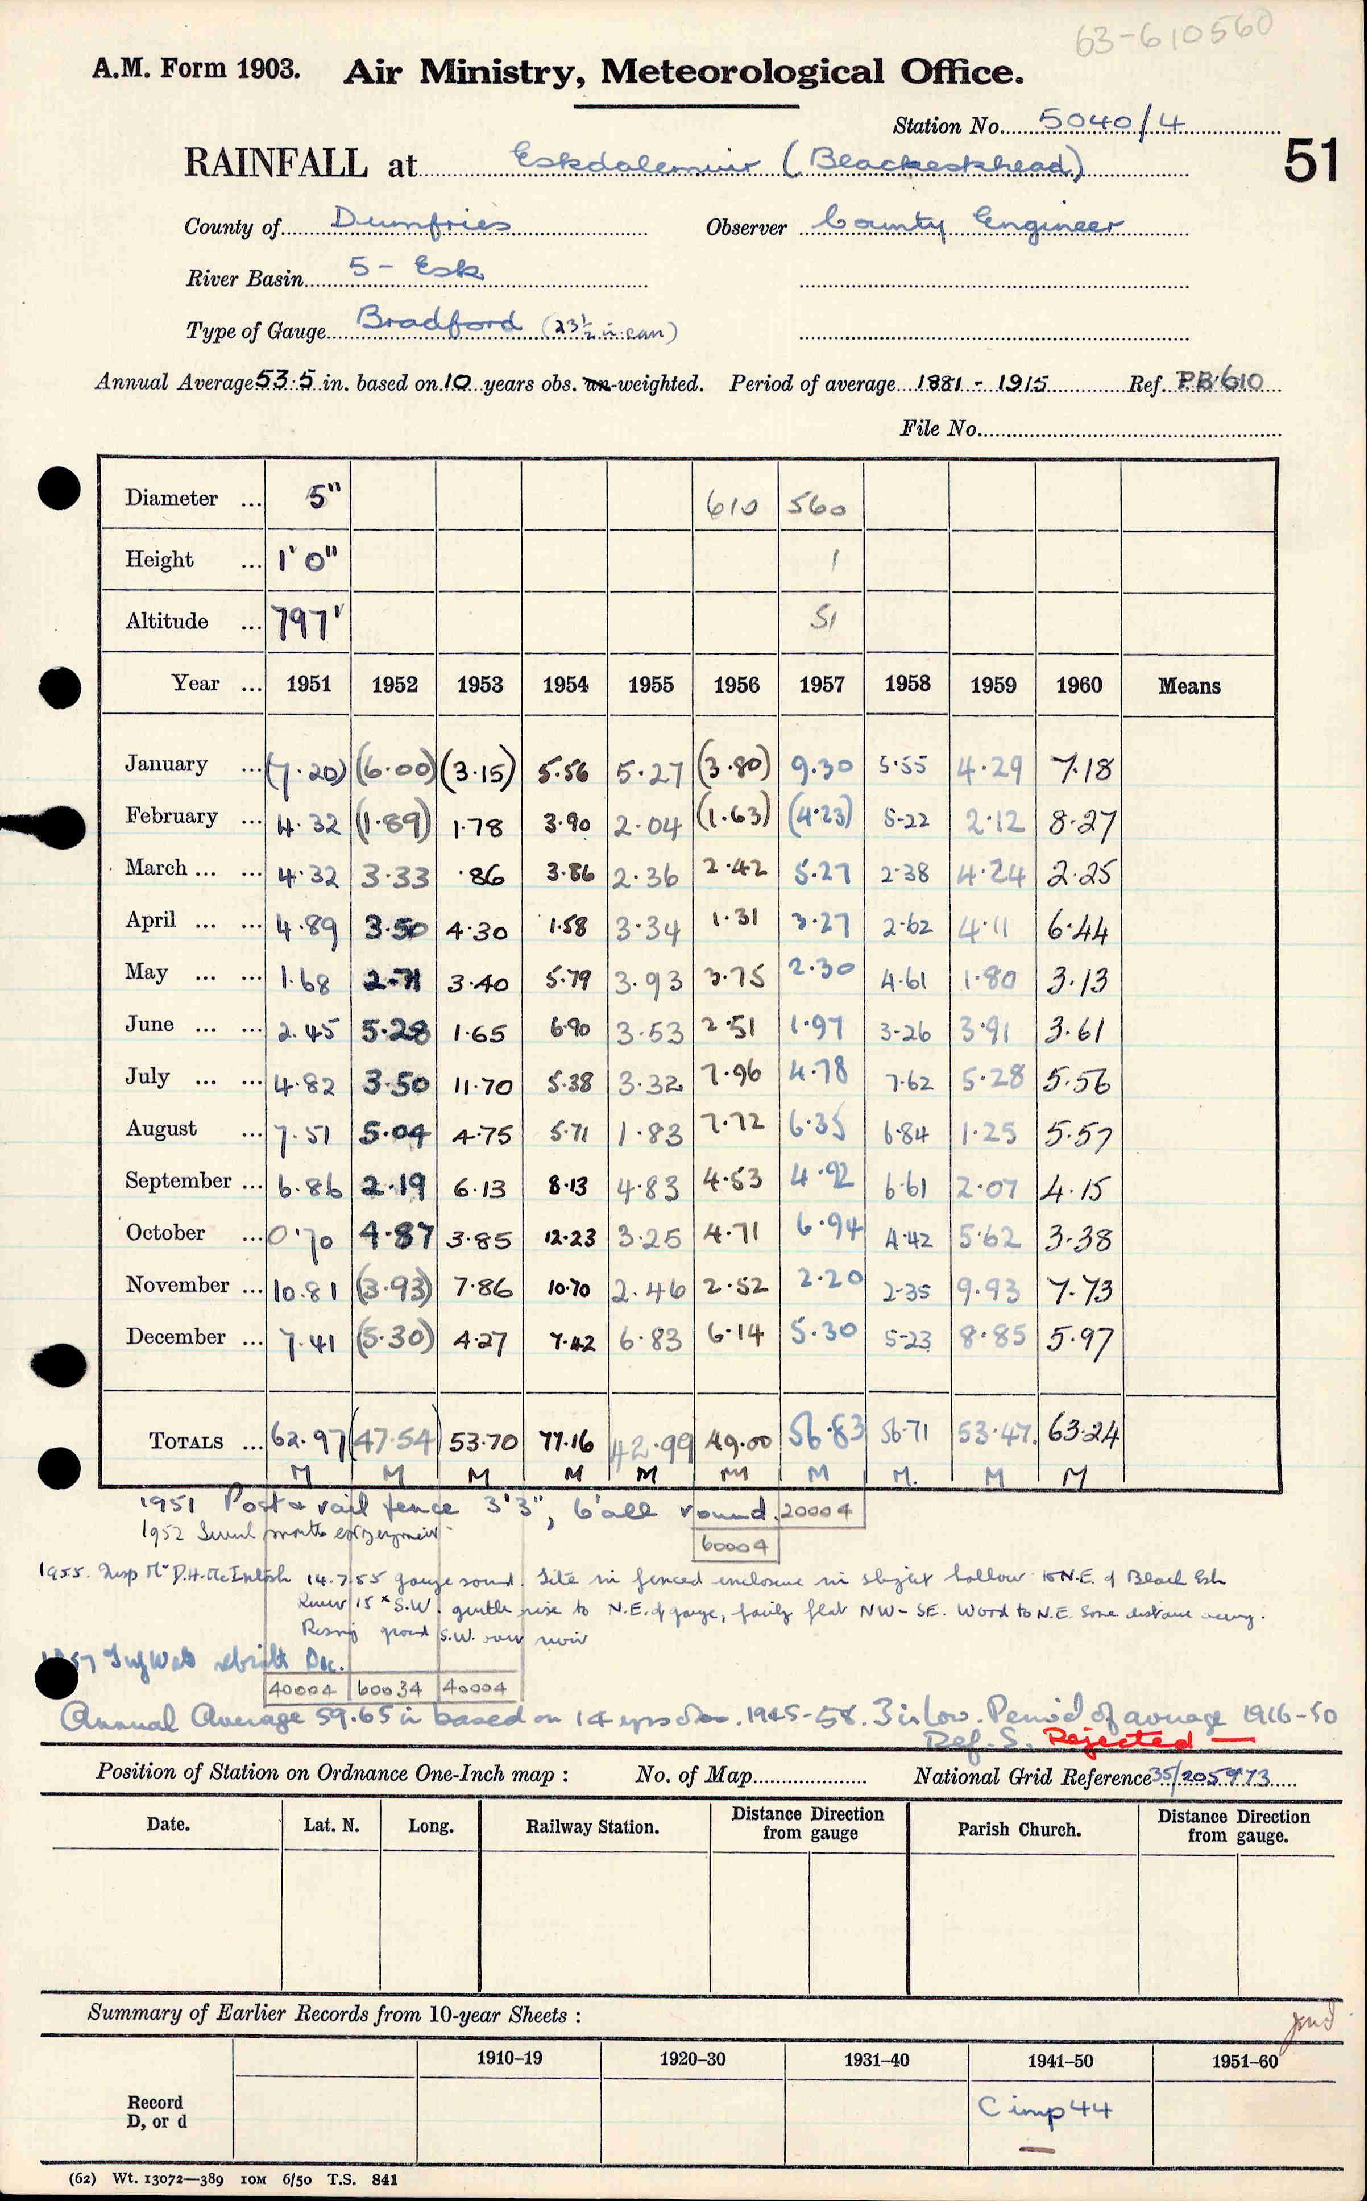 63-610560
A.M. Form 1903. Air Ministry, Meteorological Office.
Station No. 5040/4
RAINFALL at Eskdalemuir (Blackeskhead)
51
County of Dumfries Observer County Engineer
River Basin 5 - Esk
Type of Gauge Bradford (23½ in. can)
Annual Average 53.5 in. based on 10 years obs. un-weighted. Period of average 1881 - 1915 Ref. PB610
File No.
Diameter ... 5" 610 560
Height ... 1' 0" 1
Altitude ... 797' 51
Year ... 1951 1952 1953 1954 1955 1956 1957 1958 1959 1960 Means
January ... (7.20) (6.00) (3.15) 5.56 5.27 (3.80) 9.30 5.55 4.29 7.18
February ... 4.32 (1.89) 1.78 3.90 2.04 (1.63) (4.23) 5.22 2.12 8.27
March ... ... 4.32 3.33 .86 3.86 2.36 2.42 5.27 2.38 4.24 2.25
April ... ... 4.89 3.50 4.30 1.58 3.34 1.31 3.27 2.62 4.11 6.44
May ... ... 1.68 2.71 3.40 5.79 3.93 3.75 2.30 4.61 1.80 3.13
June ... ... 2.45 5.28 1.65 6.90 3.53 2.51 1.97 3.26 3.91 3.61
July ... ... 4.82 3.50 11.70 5.38 3.32 7.96 4.78 7.62 5.28 5.56
August ... 7.51 5.04 4.75 5.71 1.83 7.72 6.35 6.84 1.25 5.57
September ... 6.86 2.19 6.13 8.13 4.83 4.53 4.92 6.61 2.07 4.15
October ... 0.70 4.87 3.85 12.23 3.25 4.71 6.94 4.42 5.62 3.38
November ... 10.81 (3.93) 7.86 10.70 2.46 2.52 2.20 2.35 9.93 7.73
December ... 7.41 (5.30) 4.27 7.42 6.83 6.14 5.30 5.23 8.85 5.97
TOTALS ... 62.97 (47.54) 53.70 77.16 42.99 49.00 56.83 56.71 53.47 63.24
M M M M M M M M. M M
1951 Post & rail fence 3'3", 6' all round. 20004
1952 months 60004
1955. Insp Mr D.H. McIntosh 14.7.55 gauge sound. Site in fenced enclosure in slight hollow to N.E. of Black Esk
River 15 S.W. gentle rise to N.E. of gauge, fairly flat NW - SE. Wood to N.E. some distance away.
Rising ground S.W. over
1957 rebuilt Dec.
40004 60034 40004
Annual Average 59.65 in based on 14 yrs obs. 1945-58. 3 in low. Period of average 1916-50
Ref. S. Rejected —
Position of Station on Ordnance One-Inch map : No. of Map National Grid Reference 35/205973
Date. Lat. N. Long. Railway Station. Distance Direction from gauge Parish Church. Distance Direction from gauge.
Summary of Earlier Records from 10-year Sheets :
1910–19 1920–30 1931–40 1941–50 1951–60
Record D, or d C imp 44
(62) Wt. 13072—389 10M 6/50 T.S. 841